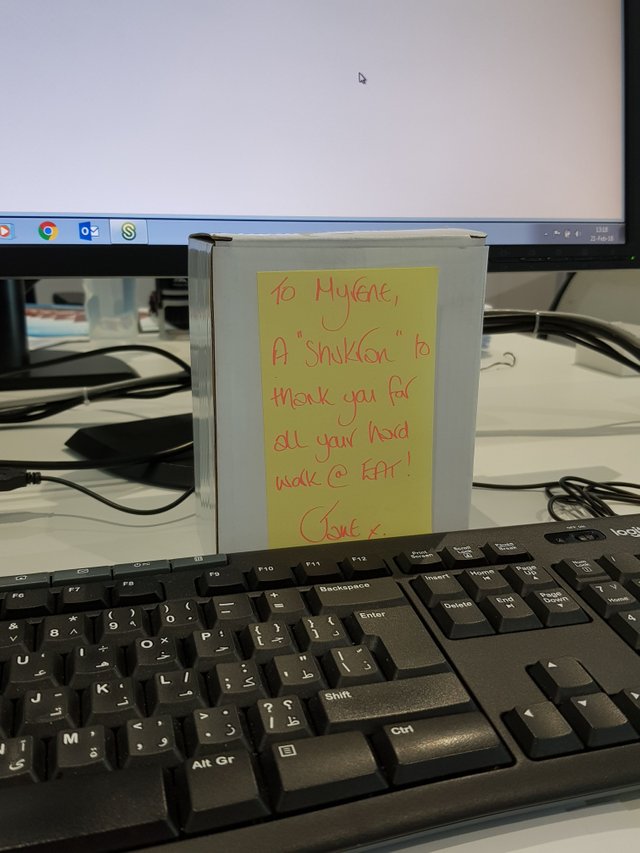 13:18
21-Feb-18
To Myrene,
A "Shukran" to
thank you for
all your hard
work @ EAT!
Jane x.
F6 F7 F8 F9 F10 F11 F12 Print Screen Scroll Pause Break
logi
& ٧ 8 * ٨ 9 ( ٩ 0 ) ٠ - _ = + Backspace Insert Home Page Up
U ع I ه O خ P ح { [ ج } ] د Enter Delete End Page Down
7 Home
J ت K ن L م : ; ك " ' ط Shift 4
N ى M ة , و . ز ؟ / ظ Ctrl
Alt Gr